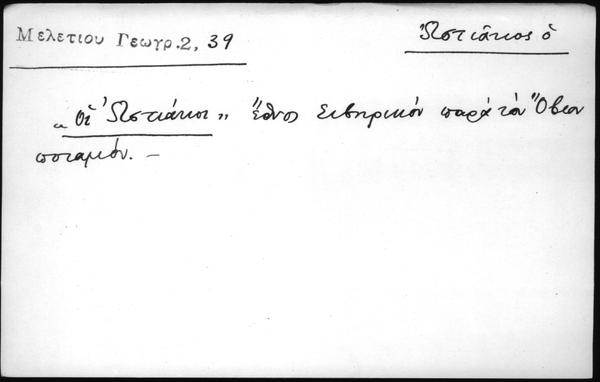 Μελετίου Γεωγρ. 2, 39
Ὠστιᾶκος ὁ
„ Οἱ Ὠστιάκοι „ Ἔθνος Σιβηρικόν παρά τόν Ὄβιον
ποταμόν. —